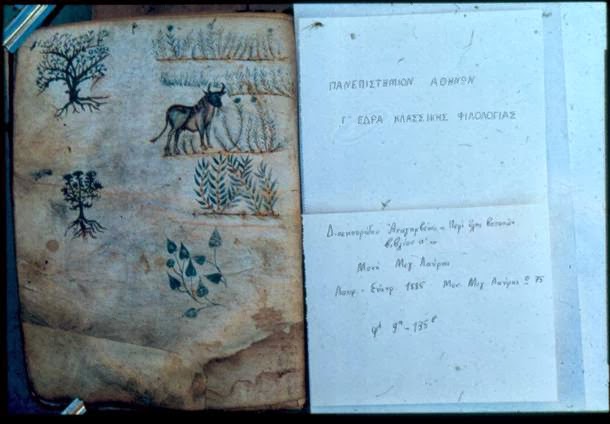 ΠΑΝΕΠΙΣΤΗΜΙΟΝ ΑΘΗΝΩΝ
Γ' ΕΔΡΑ ΚΛΑΣΣΙΚΗΣ ΦΙΛΟΛΟΓΙΑΣ
Διοσκουρίδου Περὶ ὕλης
βιβλίον α'
Μονὴ Μεγ. Λαύρας
Λαυρ. - Εὐστρ. 1885 Μον. Μεγ. Λαύρας Ω 75
φφ 9 - 135